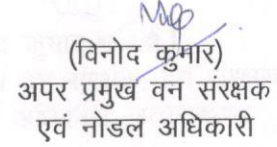 (विनोद कुमार)
अपर प्रमुख वन संरक्षक
एवं नोडल अधिकारी